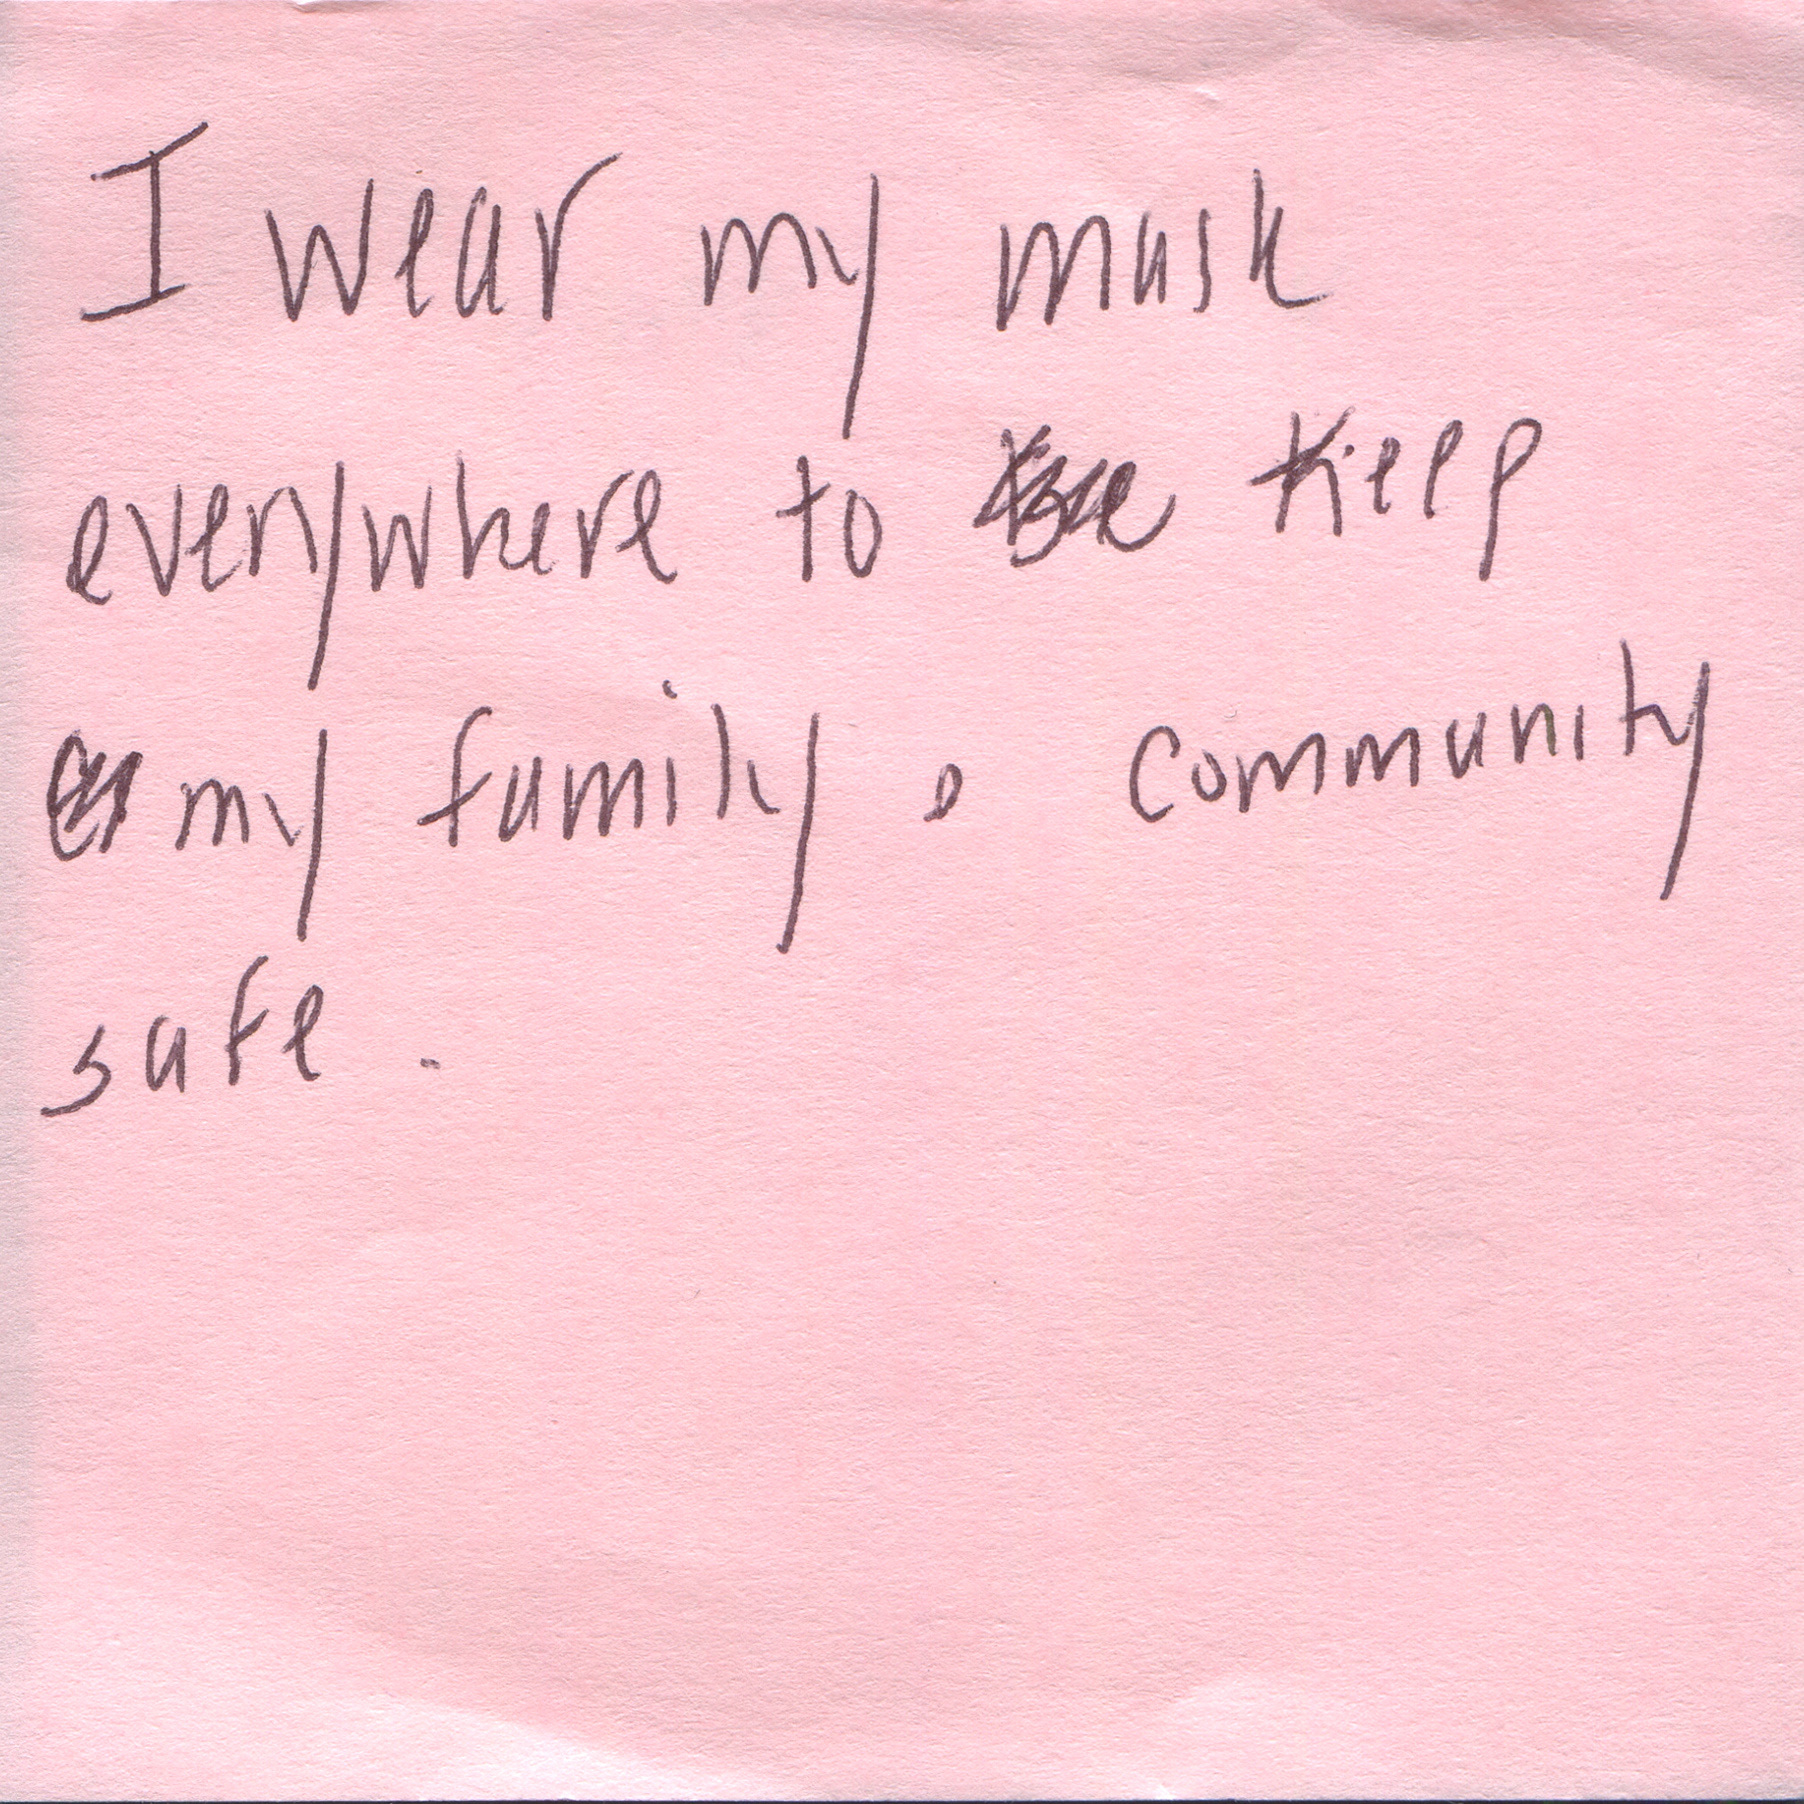 I wear my mask
everywhere to keep
my family, community
safe.